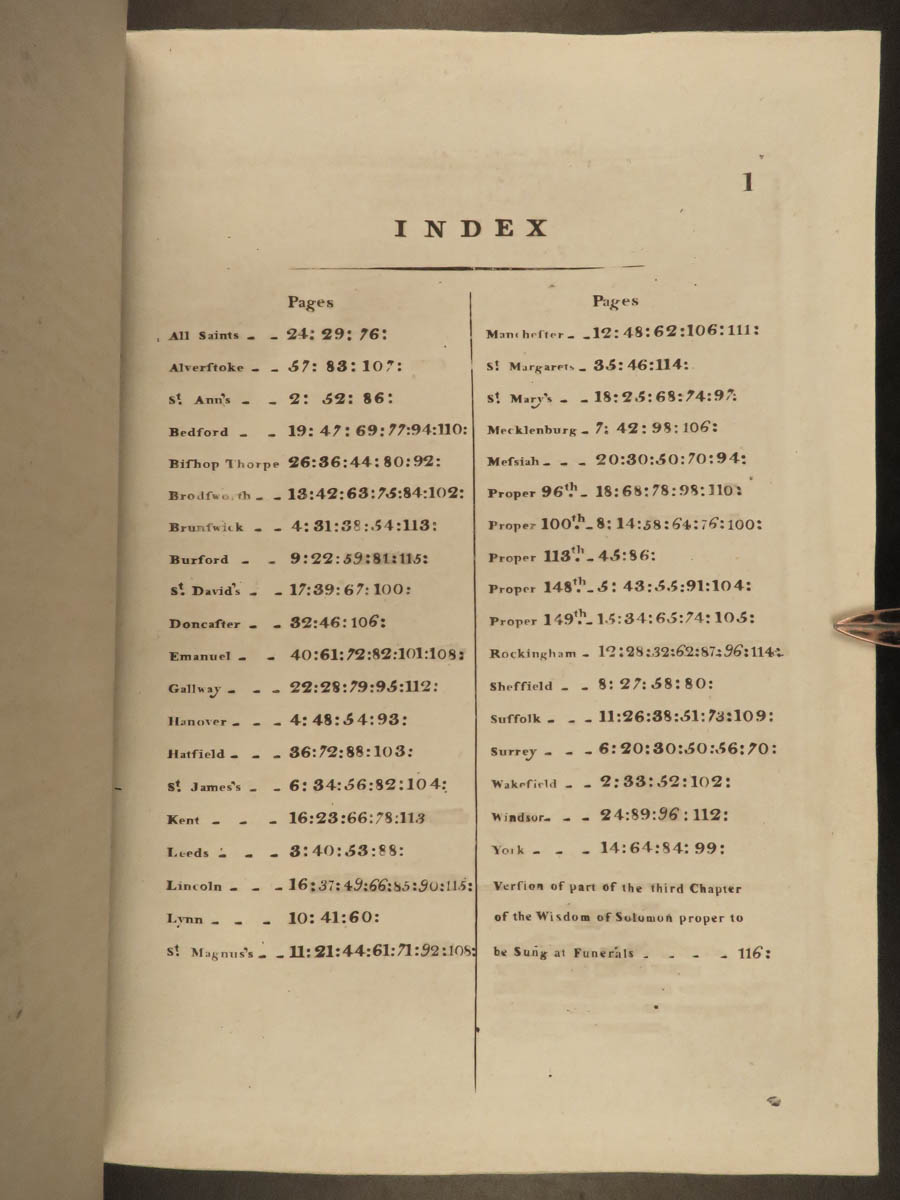 1
INDEX
Pages
All Saints - - 24: 29: 76:
Alverſtoke - - 57: 83: 107:
St. Ann's - - 2: 52: 86:
Bedford - - 19: 47: 69:77:94:110:
Biſhop Thorpe 26:36:44:80:92:
Brodſworth - - 13:42:63:75:84:102:
Brunſwick - - 4:31:38:54:113:
Burford - - 9:22:59:81:115:
St. David's - - 17:39:67:100:
Doncaſter - - 32:46:106:
Emanuel - - 40:61:72:82:101:108:
Gallway - - - 22:28:79:95:112:
Hanover - - - 4: 48:54:93:
Hatfield - - - 36:72:88:103:
St. James's - - 6: 34:56:82:104:
Kent - - - 16:23:66:78:113
Leeds - - - 3:40:53:88:
Lincoln - - - 16:37:49:66:85:90:115:
Lynn - - - 10: 41:60:
St. Magnus's - - 11:21:44:61:71:92:108:
Pages
Mancheſter - - 12: 48:62:106:111:
St. Margarets - 35:46:114:
St. Mary's - - 18:25:68:74:97:
Mecklenburg - 7: 42: 98: 106:
Meſsiah - - - 20:30:50:70:94:
Proper 96th. - 18:68:78:98:110:
Proper 100th. - 8: 14:58:64:76:100:
Proper 113th. - 45:86:
Proper 148th. - 5: 43:55:91:104:
Proper 149th. - 15:34:65:74: 105:
Rockingham - 12:28:32:62:87:96:114:
Sheffield - - 8: 27:58:80:
Suffolk - - - 11:26:38:51:73:109:
Surrey - - - 6:20:30:50:56:70:
Wakefield - - 2:33:52:102:
Windsor - - - 24:89:96: 112:
York - - - 14:64:84: 99:
Verſion of part of the third Chapter
of the Wisdom of Solomon proper to
be Sung at Funerals - - - - 116: